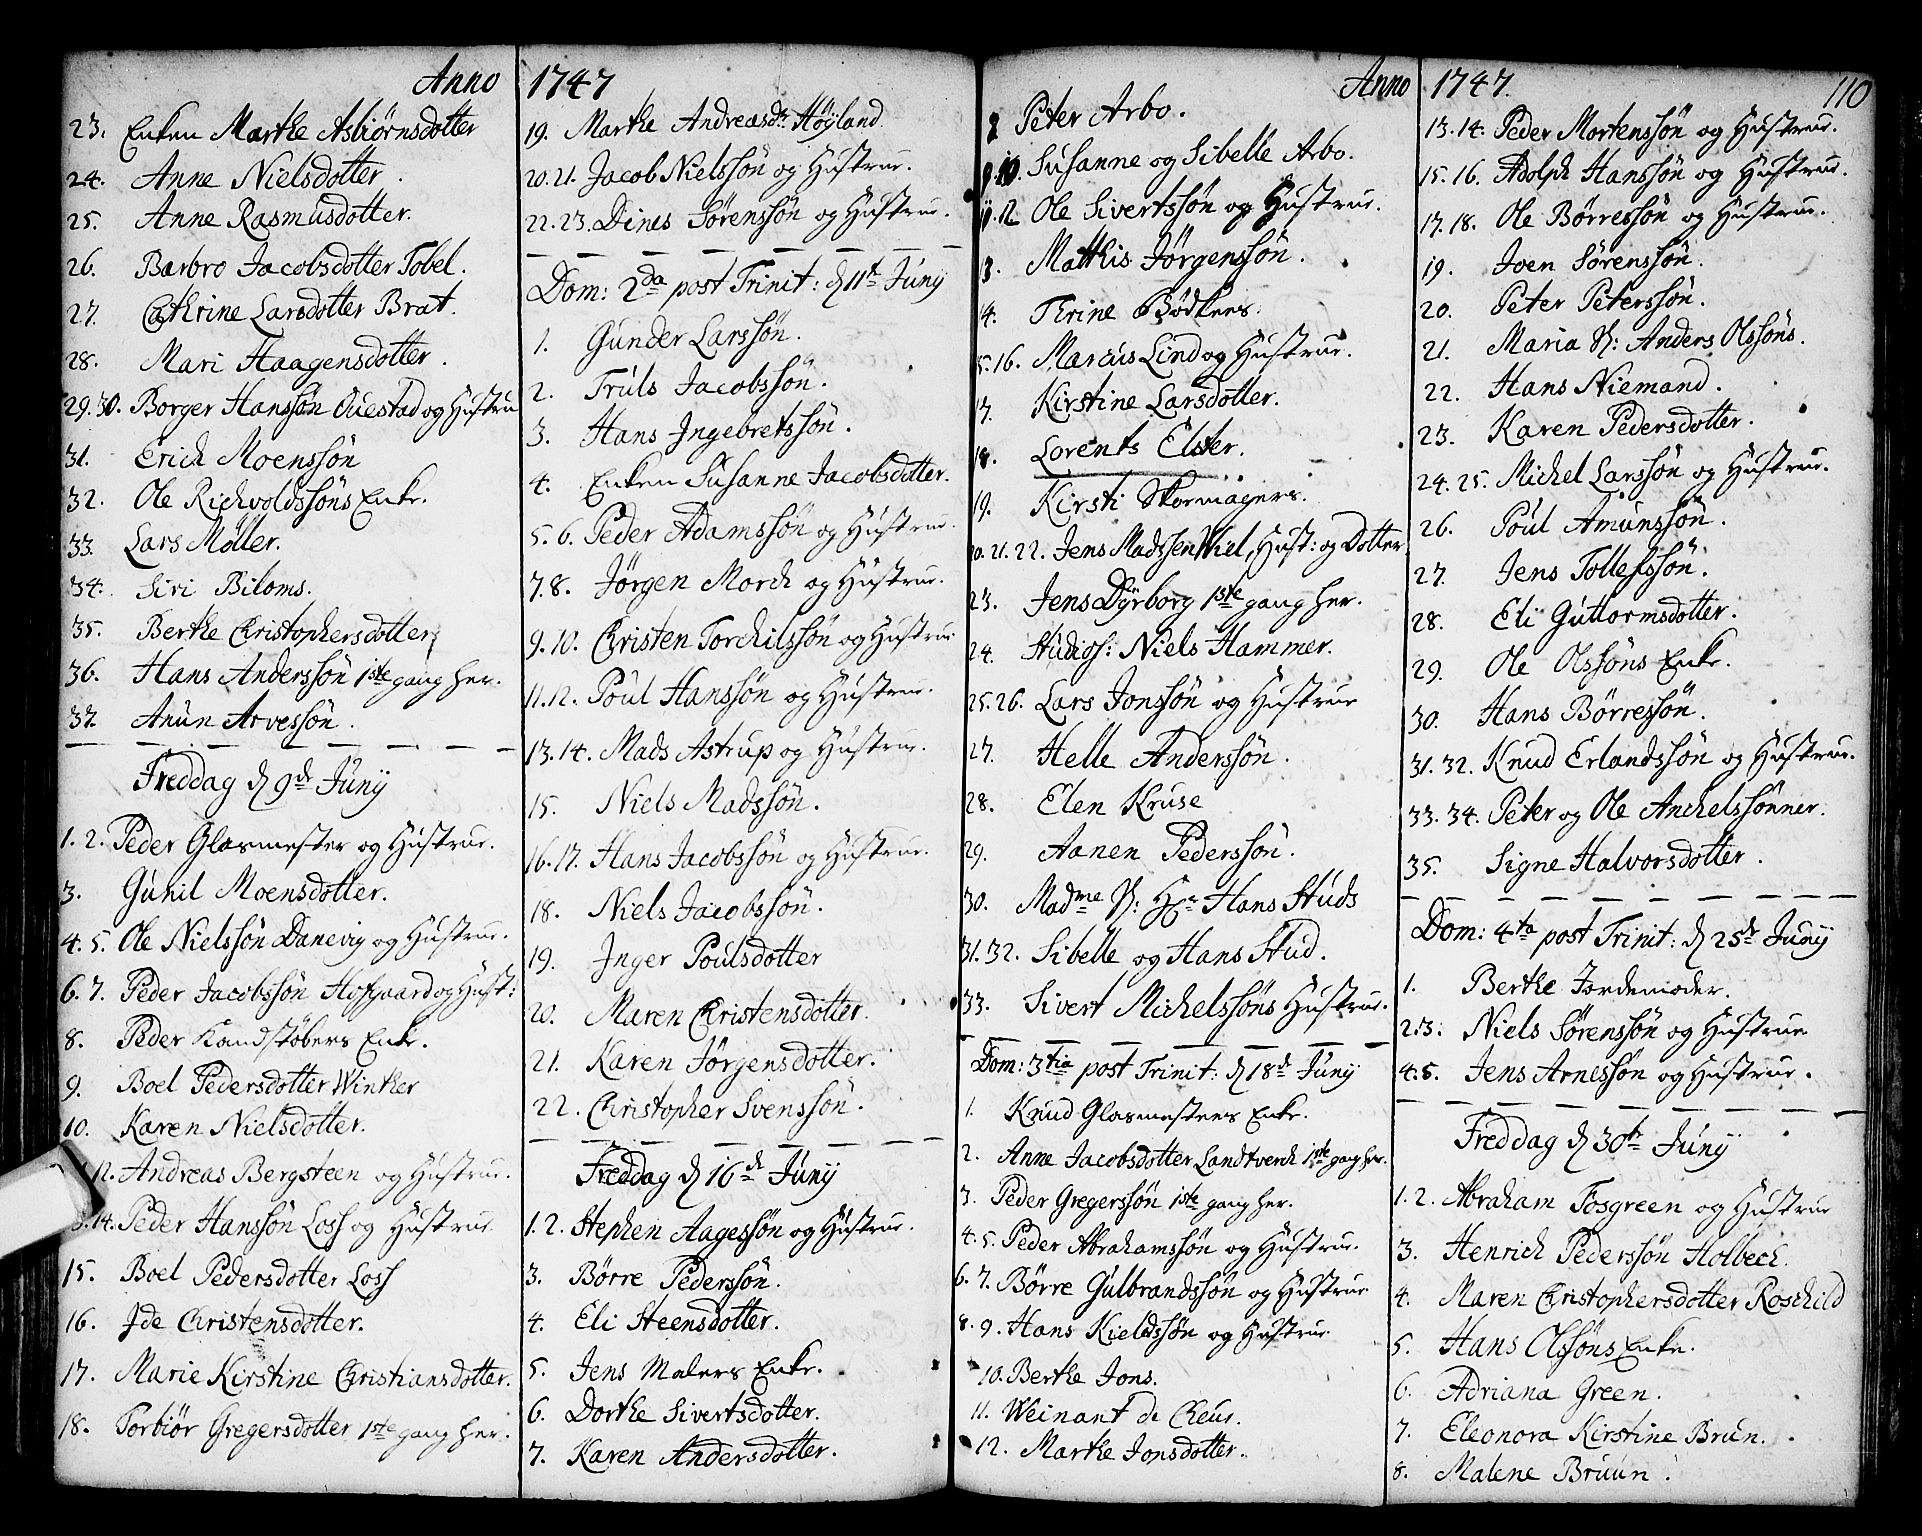 Anno 1747
23. Enken Marthe Asbiørnsdotter
24. Anne Nielsdotter.
25. Anne Rasmusdotter.
26. Barbro Jacobsdotter Tobel.
27. Cathrine Larsdotter Brat.
28. Mari Haagensdotter.
29. 30. Borger Hanssøn Ouestad og Hustru
31. Erich Moenssøn
32. Ole Richvoldssøns Enke.
33. Lars Møller.
34. Siri Biloms.
35. Berthe Christophersdotter
36. Hans Anderssøn 1ste gang her.
37. Anun Arvessøn.
Freddag d 9de Junij
1. 2. Peder Glasmester og Hustrue.
3. Gunil Moensdotter.
4. 5. Ole Nielssøn Danevig og Hustrue.
6. 7. Peder Jacobssøn Hofgaard og Hust:
8. Peder Kandstøbers Enke.
9. Boel Pedersdotter Winther
10. Karen Nielsdotter.
12. Andreas Bergsteen og Hustrue.
14. Peder Hanssøn Loss og Hustrue
15. Boel Pedersdotter Loss
16. Ide Christensdotter.
17. Marie Kirstine Christiansdotter.
18. Torbiør Gregersdotter 1ste gang her.
19. Marthe Andreasdr. Høyland
20. 21. Jacob Nielssøn og Hustrue.
22. 23. Dines Sørenssøn og Hustrue.
Dom: 2da post Trinit: d 11te Junij
1. Gunder Larssøn.
2. Truls Jacobssøn.
3. Hans Ingebretssøn.
4. Enken Susanne Jacobsdotter.
5. 6. Peder Adamssøn og Hustrue.
7. 8. Jørgen Morch og Hustrue.
9. 10. Christen Torchilssøn og Hustrue
11. 12. Poul Hanssøn og Hustrue.
13. 14. Mads Astrup og Hustrue.
15. Niels Madssøn.
16. 17. Hans Jacobssøn og Hustrue.
18. Niels Jacobssøn.
19. Inger Poulsdotter
20. Maren Christensdotter.
21. Karen Jørgensdotter.
22. Christopher Svenssøn.
Freddag d 16de Junij
1. 2. Stephen Aagessøn og Hustrue.
3. Børre Pederssøn.
4. Eli Steensdotter.
5. Jens Malers Enke.
6. Dorthe Sivertsdotter.
7. Karen Andersdotter.
Anno 1747. 110
8 Peter Arbo.
9. 10. Susanne og Sibelle Arbo.
11. 12 Ole Sivertssøn og Hustrue.
13. Mathis Jørgenssøn.
14. Thrine Bødkers.
5. 16. Marcus Lind og Hustrue.
17. Kirstine Larsdotter.
18. Lorents Elster.
19. Kirsti Skormagers.
20. 21. 22. Jens Madssen Wiel, Hust: og Dotter
23. Jens Dyrborg 1ste gang her.
24. Studios: Niels Hammer.
25. 26. Lars Jonssøn og Hustrue
27. Helle Anderssøn.
28. Elen Kruse
29. Aanen Pederssøn.
30. Madme S: Hr Hans Studs
31. 32. Sibelle og Hans Stud.
33. Sivert Michelssøns Hustrue.
Dom: 3tia post Trinit: d 18de Junij
1. Knud Glasmesters Enke.
2. Anne Jacobsdotter Landtverch 1ste gag her.
3. Peder Gregerssøn 1ste gang her.
4. 5. Peder Abrahamssøn og Hustrue.
6. 7. Børre Gulbrandssøn og Hustrue
8. 9. Hans Kieldssøn og Hustrue
10. Berthe Jons.
11. Weinant de Cheur.
12. Marthe Jonsdotter.
13. 14. Peder Mortenssøn og Hustrue.
15. 16. Adolph Hanssøn og Hustrue.
17. 18. Ole Børressøn og Hustrue.
19. Joen Sørenssøn.
20. Peter Peterssøn.
21. Maria S: Anders Olssøns.
22. Hans Niemand.
23. Karen Pedersdotter.
24. 25. Michel Larssøn og Hustrue.
26. Poul Amunssøn.
27. Jens Tollefssøn.
28. Eli Guttormsdotter.
29. Ole Olssøns Enke.
30. Hans Børressøn.
31. 32. Knud Erlandssøn og Hustrue.
33. 34. Peter og Ole Anchelssønner.
35. Signe Halvorsdotter.
Dom: 4ta post Trinit: d 25de Junij
1. Berthe Jordemoder.
2. 3. Niels Sørenssøn og Hustrue
4. 5. Jens Arnessøn og Hustrue.
Freddag d 30te Junij
1. 2. Abraham Fosgreen og Hustrue
3. Henrich Pederssøn Holbech.
4. Maren Christophersdotter Roschild
5. Hans Olssøns Enke.
6. Adriana Green.
7. Eleonora Kirstine Brun.
8. Malene Bruun.